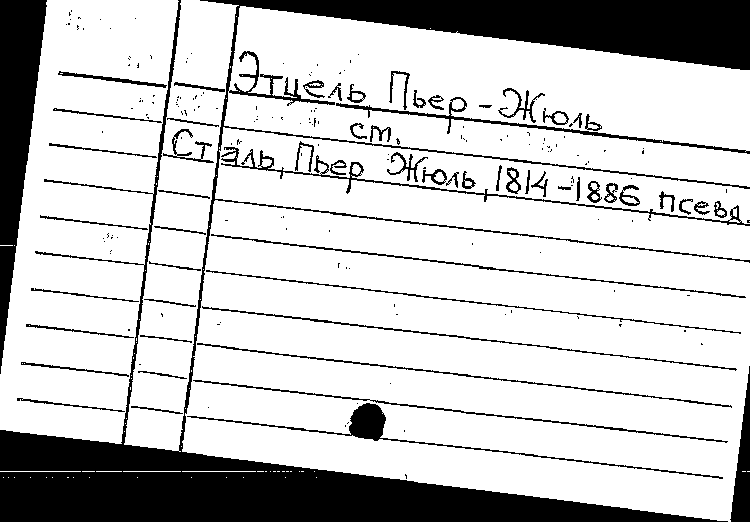 Этцель, Пьер-Жюль
ст.
Сталь, Пьер Жюль, 1814-1886, псевд.